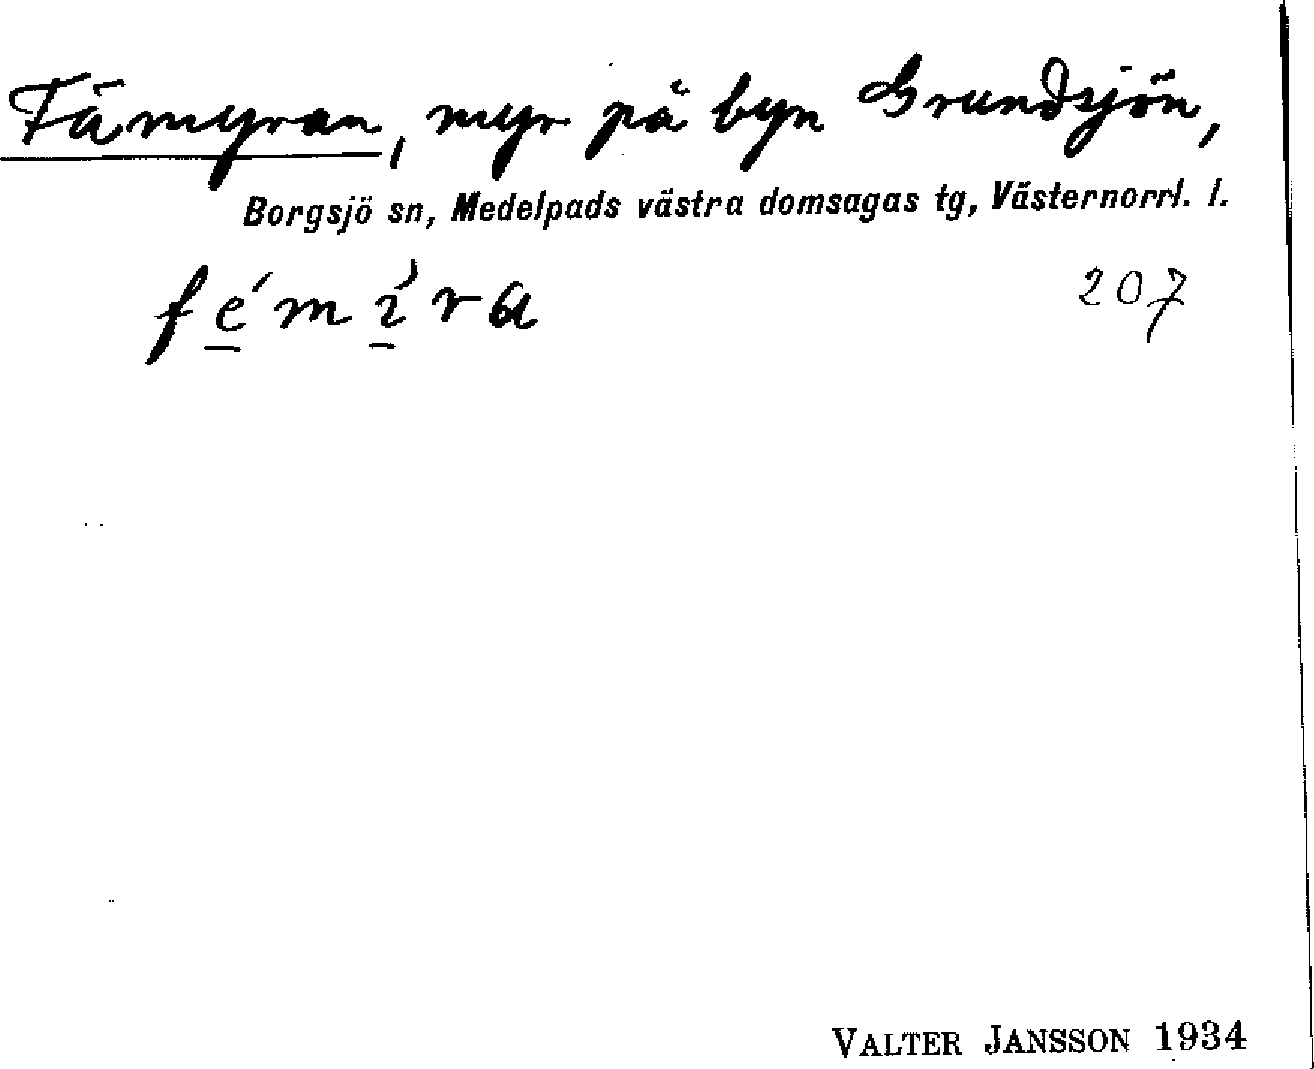 Fämyran, myr på byn Grundsjön,
Borgsjö sn, Medelpads västra domsagas tg, Västernorrl. l.
fe̲´mi̲`ra 207
VALTER JANSSON 1934